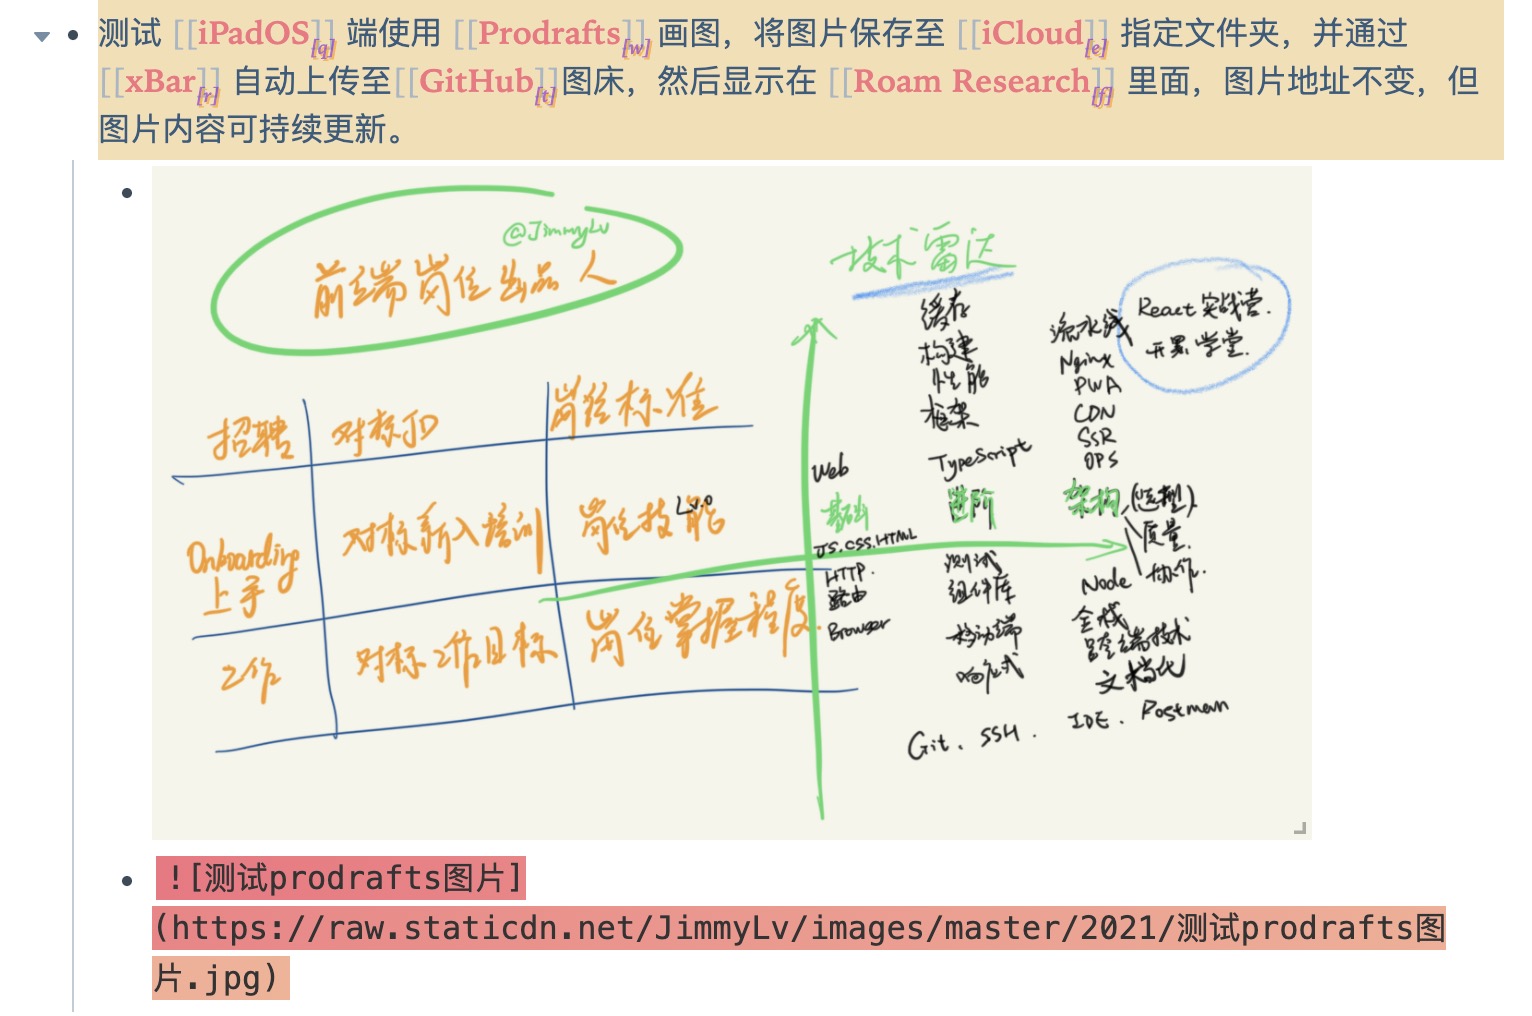 测试 [[iPadOS]][q] 端使用 [[Prodrafts]][w] 画图，将图片保存至 [[iCloud]][e] 指定文件夹，并通过
[[xBar]][r] 自动上传至[[GitHub]][t]图床，然后显示在 [[Roam Research]][f] 里面，图片地址不变，但
图片内容可持续更新。
@JimmyLv
前端岗位出品人
招聘 对标JD 岗位标准
Onboarding
上手
对标新入培训
岗位技能 Lv.0
工作 对标工作目标 岗位掌握程度
技术雷达
React 实战营.
开课学堂.
Web
基础
JS.CSS.HTML
HTTP.
路由
Browser
缓存
构建
性能
框架
TypeScript
进阶
测试
组件库
移动端
响应式
流水线
Nginx
PWA
CDN
SSR
OPS
架构 (选型)
质量.
协作.
Node
全栈
跨端技术
文档化
Git、SSH. IDE. Postman
![测试prodrafts图片]
(https://raw.staticdn.net/JimmyLv/images/master/2021/测试prodrafts图
片.jpg)